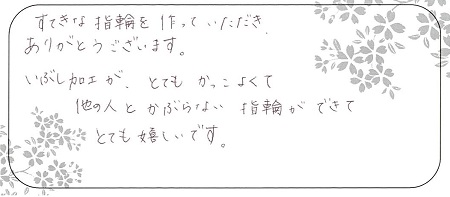 すてきな指輪を作っていただき、
ありがとうございます。
いぶし加工が、とてもかっこよくて
他の人とかぶらない指輪ができて
とても嬉しいです。